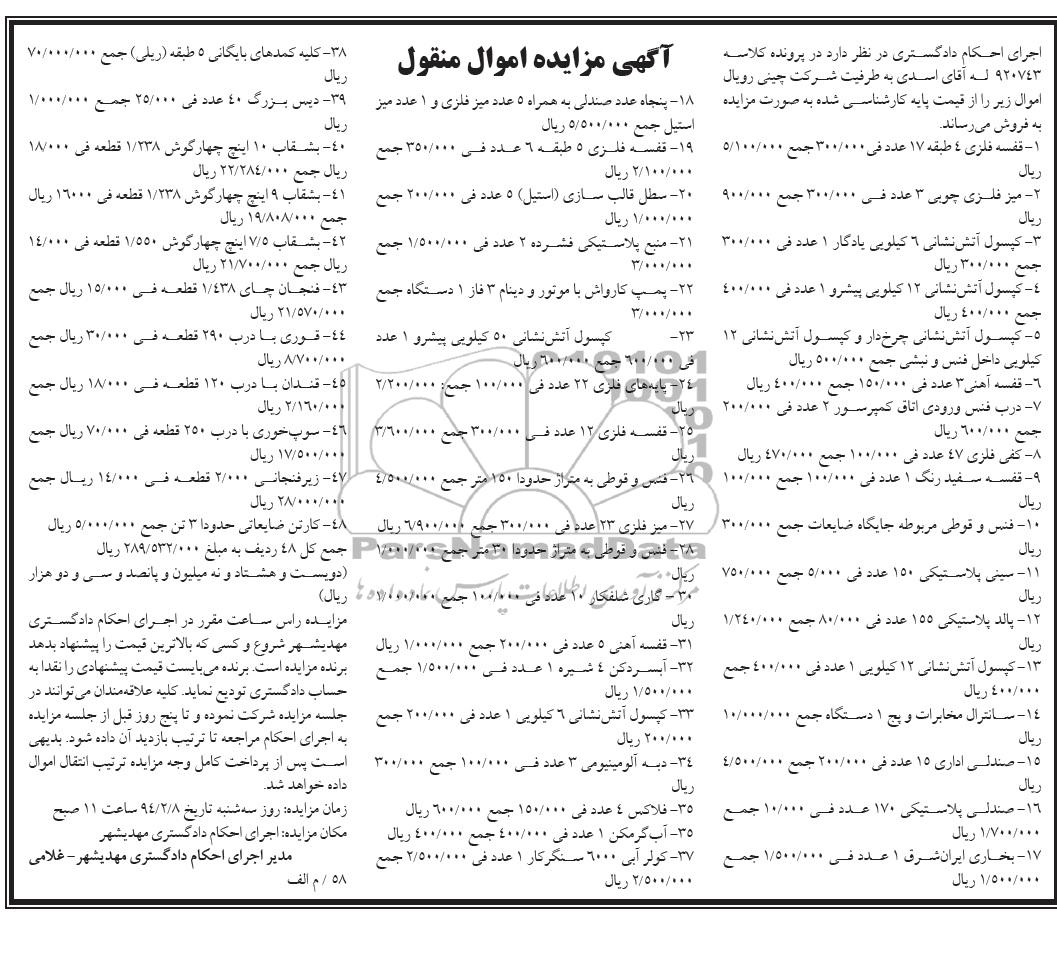 آگهی مزایده اموال منقول
اجرای احکام دادگستری در نظر دارد در پرونده کلاسه
۹۲۰۷۴۳ له آقای اسدی به طرفیت شرکت چینی رویال
اموال زیر را از قیمت پایه کارشناسی شده به صورت مزایده
به فروش می‌رساند.
۱- قفسه فلزی ۴ طبقه ۱۷ عدد فی۳۰۰/۰۰۰ جمع ۵/۱۰۰/۰۰۰
ریال
۲- میز فلزی چوبی ۳ عدد فی ۳۰۰/۰۰۰ جمع ۹۰۰/۰۰۰
ریال
۳- کپسول آتش‌نشانی ۶ کیلویی یادگار ۱ عدد فی ۳۰۰/۰۰۰
جمع ۳۰۰/۰۰۰ ریال
۴- کپسول آتش‌نشانی ۱۲ کیلویی پیشرو ۱ عدد فی ۴۰۰/۰۰۰
جمع ۴۰۰/۰۰۰ ریال
۵- کپسول آتش‌نشانی چرخ‌دار و کپسول آتش‌نشانی ۱۲
کیلویی داخل فنس و نبشی جمع ۵۰۰/۰۰۰ ریال
۶- قفسه آهنی۳ عدد فی ۱۵۰/۰۰۰ جمع ۴۰۰/۰۰۰ ریال
۷- درب فنس ورودی اتاق کمپرسور ۲ عدد فی ۲۰۰/۰۰۰
جمع ۶۰۰/۰۰۰ ریال
۸- کفی فلزی ۴۷ عدد فی ۱۰۰/۰۰۰ جمع ۴۷۰/۰۰۰ ریال
۹- قفسه سفید رنگ ۱ عدد فی ۱۰۰/۰۰۰ جمع ۱۰۰/۰۰۰
ریال
۱۰- فنس و قوطی مربوطه جایگاه ضایعات جمع ۳۰۰/۰۰۰
ریال
۱۱- سینی پلاستیکی ۱۵۰ عدد فی ۵/۰۰۰ جمع ۷۵۰/۰۰۰
ریال
۱۲- پالد پلاستیکی ۱۵۵ عدد فی ۸۰/۰۰۰ جمع ۱/۲۴۰/۰۰۰
ریال
۱۳- کپسول آتش‌نشانی ۱۲ کیلویی ۱ عدد فی ۴۰۰/۰۰۰ جمع
۴۰۰/۰۰۰ ریال
۱۴- سانترال مخابرات و پج ۱ دستگاه جمع ۱۰/۰۰۰/۰۰۰
ریال
۱۵- صندلی اداری ۱۵ عدد فی ۲۰۰/۰۰۰ جمع ۴/۵۰۰/۰۰۰
ریال
۱۶- صندلی پلاستیکی ۱۷۰ عدد فی ۱۰/۰۰۰ جمع
۱/۷۰۰/۰۰۰ ریال
۱۷- بخاری ایران‌شرق ۱ عدد فی ۱/۵۰۰/۰۰۰ جمع
۱/۵۰۰/۰۰۰ ریال
۱۸- پنجاه عدد صندلی به همراه ۵ عدد میز فلزی و ۱ عدد میز
استیل جمع ۵/۵۰۰/۰۰۰ ریال
۱۹- قفسه فلزی ۵ طبقه ۶ عدد فی ۳۵۰/۰۰۰ جمع
۲/۱۰۰/۰۰۰ ریال
۲۰- سطل قالب سازی (استیل) ۵ عدد فی ۲۰۰/۰۰۰ جمع
۱/۰۰۰/۰۰۰ ریال
۲۱- منبع پلاستیکی فشرده ۲ عدد فی ۱/۵۰۰/۰۰۰ جمع
۳/۰۰۰/۰۰۰
۲۲- پمپ کارواش با موتور و دینام ۳ فاز ۱ دستگاه جمع
۳/۰۰۰/۰۰۰
۲۳- کپسول آتش‌نشانی ۵۰ کیلویی پیشرو ۱ عدد
فی ۶۰۰/۰۰۰ جمع ۶۰۰/۰۰۰ ریال
۲۴- پایه‌های فلزی ۲۲ عدد فی ۱۰۰/۰۰۰ جمع: ۲/۲۰۰/۰۰۰
ریال
۲۵- قفسه فلزی ۱۲ عدد فی ۳۰۰/۰۰۰ جمع ۳/۶۰۰/۰۰۰
ریال
۲۶- فنس و قوطی به متراژ حدودا ۱۵۰ متر جمع ۴/۵۰۰/۰۰۰
ریال
۲۷- میز فلزی ۲۳ عدد فی ۳۰۰/۰۰۰ جمع ۶/۹۰۰/۰۰۰ ریال
۲۸- فنس و قوطی به متراژ حدودا ۳۰ متر جمع ۱/۰۰۰/۰۰۰
ریال
۳۰- گاری شلفکار ۱۰ عدد فی ۱۰۰/۰۰۰ جمع ۱/۰۰۰/۰۰۰
ریال
۳۱- قفسه آهنی ۵ عدد فی ۲۰۰/۰۰۰ جمع ۱/۰۰۰/۰۰۰ ریال
۳۲- آبسردکن ۴ شیره ۱ عدد فی ۱/۵۰۰/۰۰۰ جمع
۱/۵۰۰/۰۰۰ ریال
۳۳- کپسول آتش‌نشانی ۶ کیلویی ۱ عدد فی ۲۰۰/۰۰۰ جمع
۲۰۰/۰۰۰ ریال
۳۴- دبه آلومینیومی ۳ عدد فی ۱۰۰/۰۰۰ جمع ۳۰۰/۰۰۰
ریال
۳۵- فلاکس ۴ عدد فی ۱۵۰/۰۰۰ جمع ۶۰۰/۰۰۰ ریال
۳۵- آب‌گرمکن ۱ عدد فی ۴۰۰/۰۰۰ جمع ۴۰۰/۰۰۰ ریال
۳۷- کولر آبی ۶۰۰۰ سنگرکار ۱ عدد فی ۲/۵۰۰/۰۰۰ جمع
۲/۵۰۰/۰۰۰ ریال
۳۸- کلیه کمدهای بایگانی ۵ طبقه (ریلی) جمع ۷۰/۰۰۰/۰۰۰
ریال
۳۹- دیس بزرگ ۴۰ عدد فی ۲۵/۰۰۰ جمع ۱/۰۰۰/۰۰۰
ریال
۴۰- بشقاب ۱۰ اینچ چهارگوش ۱/۲۳۸ قطعه فی ۱۸/۰۰۰
ریال جمع ۲۲/۲۸۴/۰۰۰ ریال
۴۱- بشقاب ۹ اینچ چهارگوش ۱/۲۳۸ قطعه فی ۱۶۰۰۰ ریال
جمع ۱۹/۸۰۸/۰۰۰ ریال
۴۲- بشقاب ۷/۵ اینچ چهارگوش ۱/۵۵۰ قطعه فی ۱۴/۰۰۰
ریال جمع ۲۱/۷۰۰/۰۰۰ ریال
۴۳- فنجان چای ۱/۴۳۸ قطعه فی ۱۵/۰۰۰ ریال جمع
۲۱/۵۷۰/۰۰۰ ریال
۴۴- قوری با درب ۲۹۰ قطعه فی ۳۰/۰۰۰ ریال جمع
۸/۷۰۰/۰۰۰ ریال
۴۵- قندان با درب ۱۲۰ قطعه فی ۱۸/۰۰۰ ریال جمع
۲/۱۶۰/۰۰۰ ریال
۴۶- سوپ‌خوری با درب ۲۵۰ قطعه فی ۷۰/۰۰۰ ریال جمع
۱۷/۵۰۰/۰۰۰ ریال
۴۷- زیرفنجانی ۲/۰۰۰ قطعه فی ۱۴/۰۰۰ ریال جمع
۲۸/۰۰۰/۰۰۰ ریال
۴۸- کارتن ضایعاتی حدودا ۳ تن جمع ۵/۰۰۰/۰۰۰ ریال
جمع کل ۴۸ ردیف به مبلغ ۲۸۹/۵۳۲/۰۰۰ ریال
(دویست و هشتاد و نه میلیون و پانصد و سی و دو هزار
ریال)
مزایده راس ساعت مقرر در اجرای احکام دادگستری
مهدیشهر شروع و کسی که بالاترین قیمت را پیشنهاد بدهد
برنده مزایده است. برنده می‌بایست قیمت پیشنهادی را نقدا به
حساب دادگستری تودیع نماید. کلیه علاقه‌مندان می‌توانند در
جلسه مزایده شرکت نموده و تا پنج روز قبل از جلسه مزایده
به اجرای احکام مراجعه تا ترتیب بازدید آن داده شود. بدیهی
است پس از پرداخت کامل وجه مزایده ترتیب انتقال اموال
داده خواهد شد.
زمان مزایده: روز سه‌شنبه تاریخ ۹۴/۲/۸ ساعت ۱۱ صبح
مکان مزایده: اجرای احکام دادگستری مهدیشهر
مدیر اجرای احکام دادگستری مهدیشهر- غلامی
۵۸ / م الف
ParsNamadData